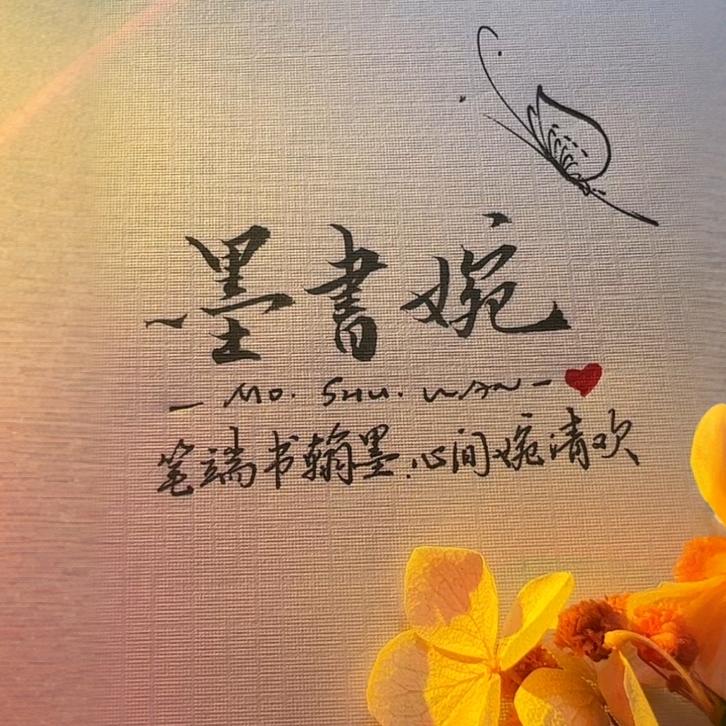 墨書婉
- MO. SHU. WAN -
笔端书翰墨.心间婉清欢